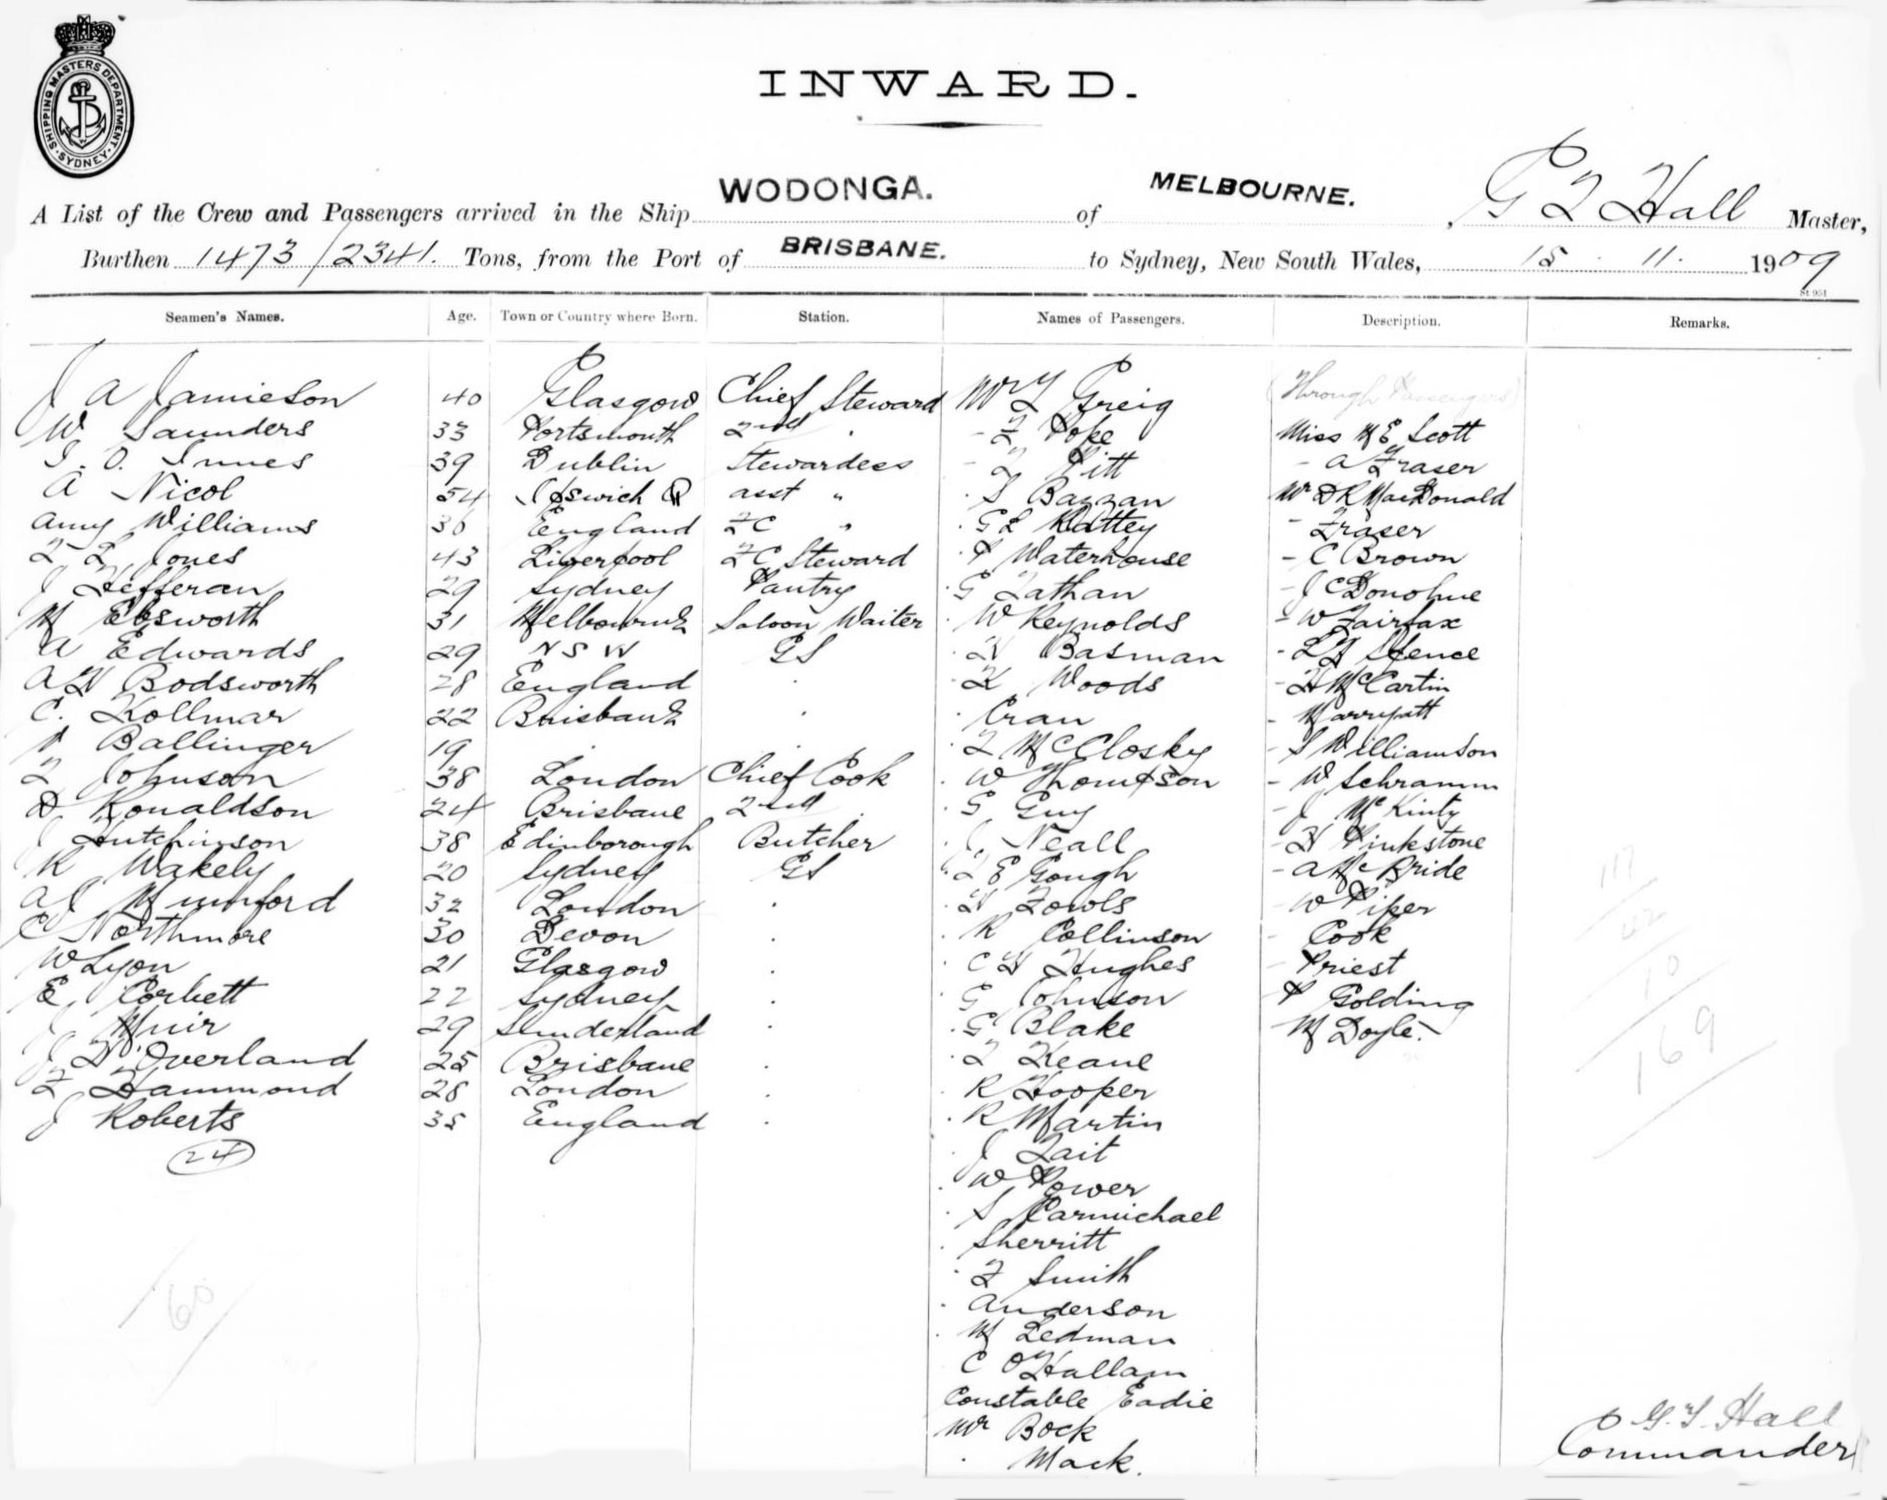 SHIPPING MASTERS DEPARTMENT · SYDNEY ·
INWARD.
A List of the Crew and Passengers arrived in the Ship WODONGA. of MELBOURNE. , Hall Master,
Burthen 1473/2341. Tons, from the Port of BRISBANE. to Sydney, New South Wales, 15 . 11. 1909
St 951
Seamen's Names. Age. Town or Country where Born. Station. Names of Passengers. Description. Remarks.
J A Jamieson 40 Glasgow Chief Steward Mr Greig (Through Passengers)
W Saunders 33 Portsmouth 2nd " - F Pope Miss M E Scott
Innes 39 Dublin Stewardess - Pitt - A Fraser
A Nicol 54 Ipswich Q asst " . S Bazzan Mr D R MacDonald
Amy Williams 30 England FC " . G L Rattey - Fraser
Jones 43 Liverpool FC Steward . P Waterhouse - C Brown
J Hefferan 29 Sydney Pantry . G Nathan - J C Donohue
M Ebsworth 31 Melbourne Saloon Waiter . W Reynolds - W Fairfax
A Edwards 29 N S W GS . H Basman - Spence
A H Bodsworth 28 England . . Woods - H McCartin
C. Kollmar 22 Brisbane . . Cran - Marryatt
Ballinger 19 . . . McClosky - S Williamson
Johnson 38 London Chief Cook . W Thompson - W Schramm
D Ronaldson 24 Brisbane 2nd . G Guy - J McKinty
J Hutchinson 38 Edinborough Butcher . J. Neall - H Pinkstone
R Wakely 20 Sydney GS . E Gough - A McBride
A J Mumford 32 London . . H Fowls - W Piper
C Northmore 30 Devon . . R Collinson - Cook
W Lyon 21 Glasgow . . C H Hughes - Priest
E. Corbett 22 Sydney . . G Johnson P Golding
J Muir 29 Sunderland . . G Blake M Doyle.
J H Overland 25 Brisbane . . Keane
F Hammond 28 London . . R Hooper
J Roberts 35 England . . R Martin
24
. J Tait
. W Power
. S Carmichael
. Sherritt
. F Smith
. Anderson
. M Ledman
C O'Hallam
Constable Eadie
Mr Bock
. Mack.
117
42
10
169
60
G. T. Hall
Commander